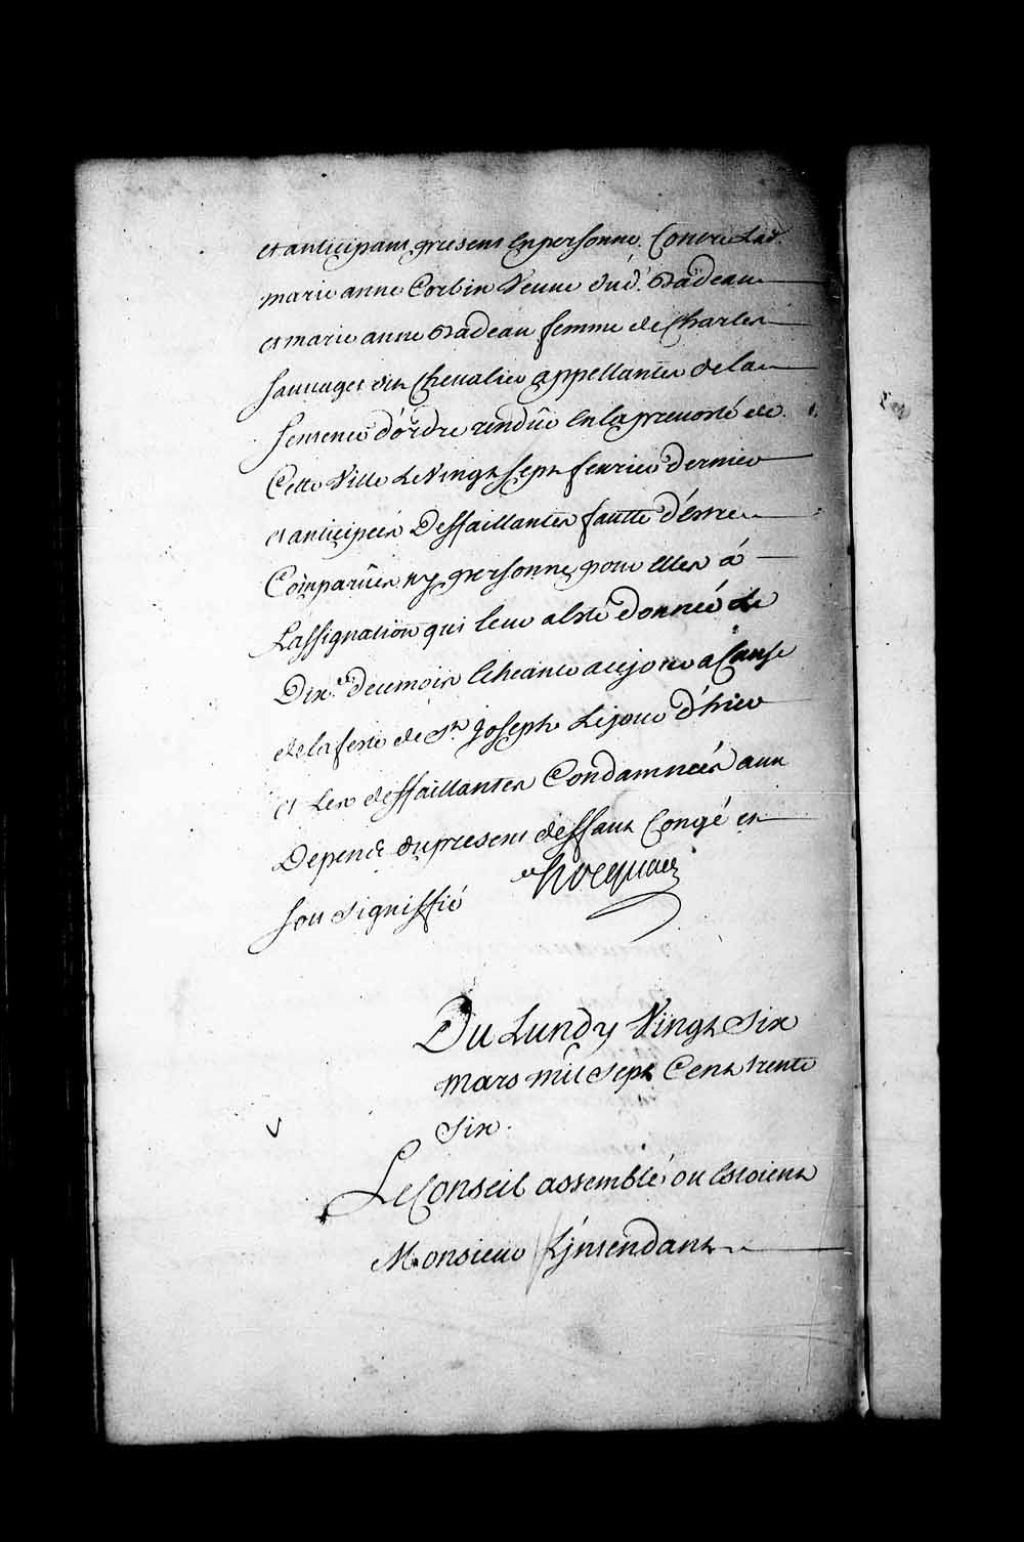 et anticipant present En personne. Contre Lad.
marie anne Corbin Veuve dud. Badeau
et marie anne Badeau femme de Charles
sauvaget dit Chevalier appellantes de la
sentence d'ordre rendûe En la prevosté de
Cette Ville Le Vingt sept fevrier dernier
et anticipeés Deffaillantes fautte d'Estre
Comparûes ny personne pour Elles á
L'assignation qui leur a Esté donneé Le
Dix.e du mois Echeante a ce jour a Cause
de la feste de St. Joseph Le jour d'hier
et Les deffaillantes Condamneés aux
Depens du present deffaut Congé et
soit signiffié
hocquart
Du Lundy Vingt Six
mars mil Sept Cent trente
Six.
Le Conseil assemblé ou Estoient
Monsieur L'jntendant